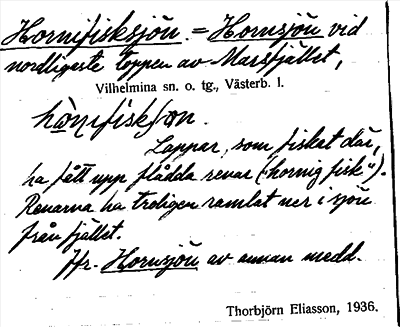 Hornifisksjön. = Hornsjön vid
nordligaste toppen av Marsfjället,
Vilhelmina sn. o. tg., Västerb. l.
Lappar, som fiskat där,
ha fått upp flådda renar ("hornig fisk").
Renarna ha troligen ramlat ner i sjön
från fjället.
Jfr. Hornsjön av annan medd.
Thorbjörn Eliasson, 1936.